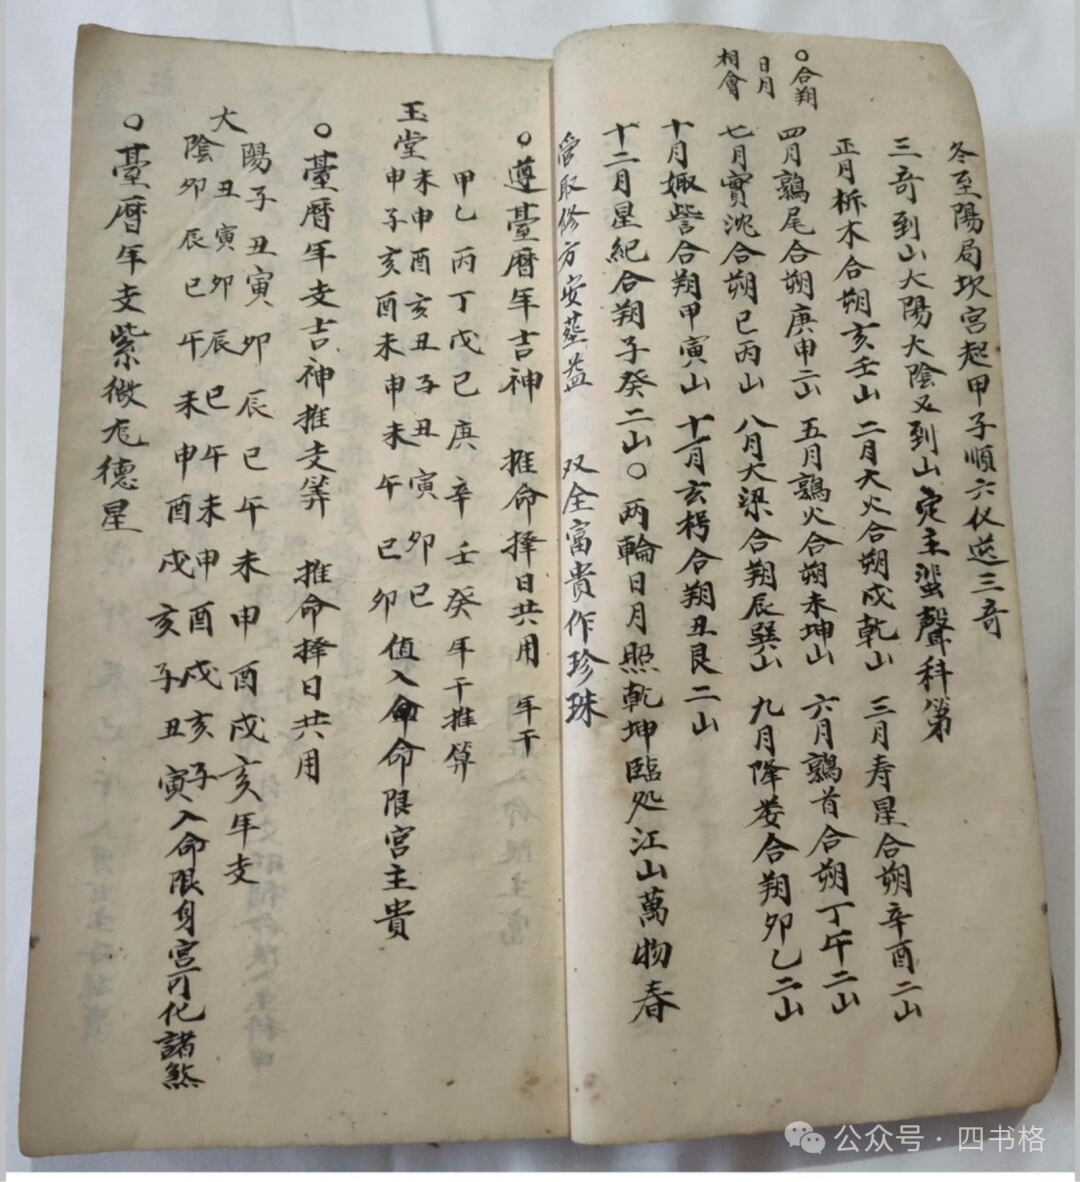 冬至陽局坎宫起甲子順六仪逆三奇
三奇到山大陽大陰又到山定主蜚聲科第
正月析木合朔亥壬山 二月大火合朔戌乾山 三月寿星合朔辛酉二山
○合朔
日月
相會
四月鶉尾合朔庚申二山 五月鶉火合朔未坤山 六月鶉首合朔丁午二山
七月實沈合朔巳丙山 八月大梁合朔辰巽山 九月降娄合朔卯乙二山
十月娵訾合朔甲寅山 十一月玄枵合朔丑艮二山
十二月星紀合朔子癸二山○两輪日月照乾坤臨処江山萬物春
管取修方安葬益 双全富貴作珍珠
○遵臺曆年吉神 推命择日共用 年干
甲乙丙丁戊己庚辛壬癸年干推算
玉堂
未申酉亥丑子丑寅卯巳
申子亥酉未申未午巳卯 值入命命限宫主貴
○臺曆年支吉神推支筭 推命择日共用
大
陽子丑寅卯辰巳午未申酉戌亥年支
丑寅卯辰巳午未申酉戌亥子
陰卯辰巳午未申酉戌亥子丑寅入命限身宫可化諸煞
○臺曆年支紫微龙德星
公众号·四书格